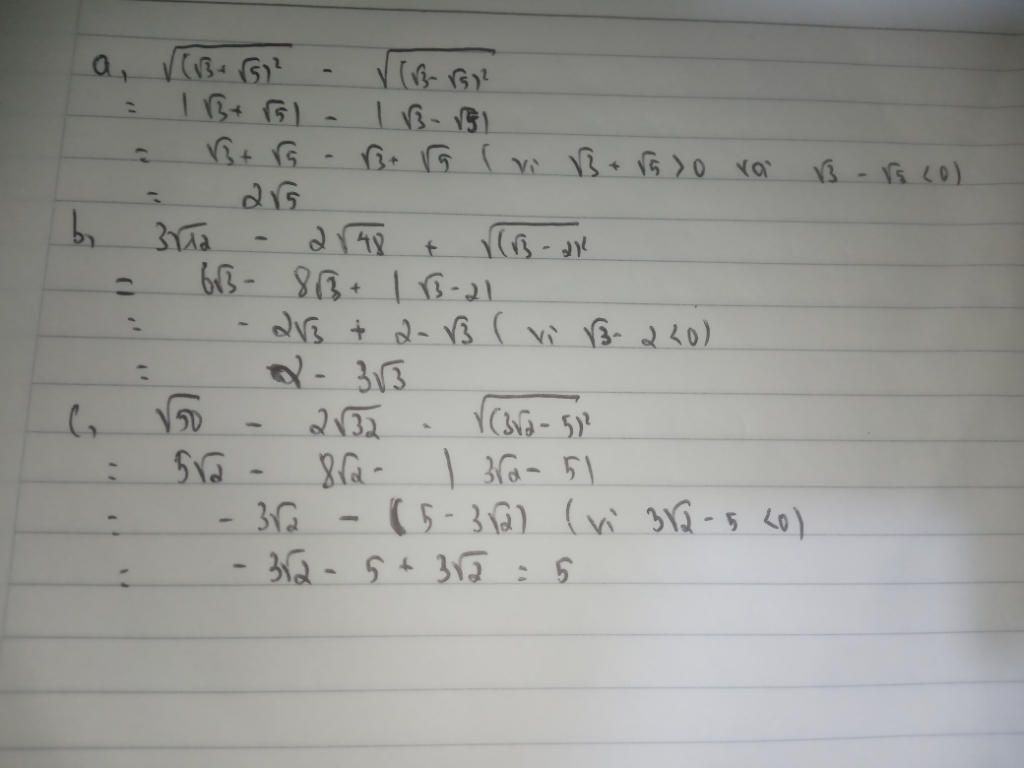 a, √(√3 + √5)² - √(√3 - √5)²
= |√3 + √5| - |√3 - √5|
= √3 + √5 - √3 + √5 ( vì √3 + √5 > 0 và √3 - √5 < 0)
= 2√5
b, 3√12 - 2√48 + √(√3 - 2)²
= 6√3 - 8√3 + |√3 - 2|
= - 2√3 + 2 - √3 ( vì √3 - 2 < 0)
= 2 - 3√3
c, √50 - 2√32 - √(3√2 - 5)²
= 5√2 - 8√2 - |3√2 - 5|
= - 3√2 - (5 - 3√2) (vì 3√2 - 5 < 0)
= - 3√2 - 5 + 3√2 = 5